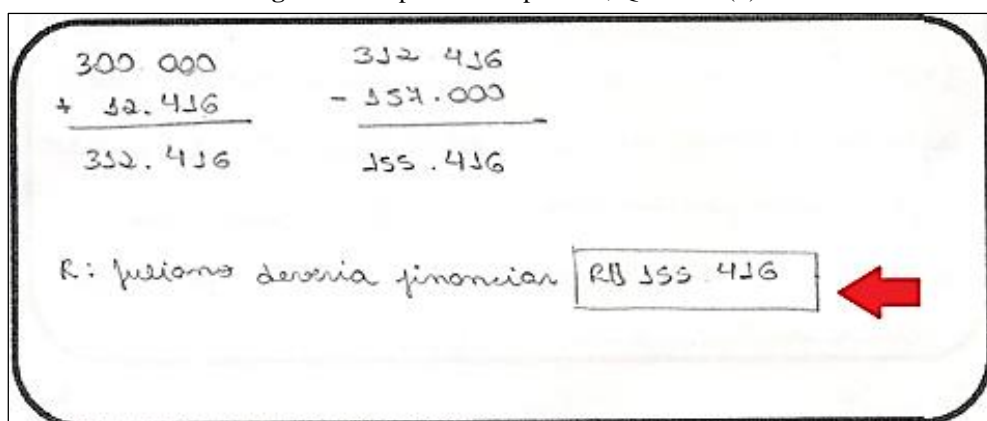 300.000
+ 12.416
312.416
312.416
- 157.000
155.416
R: Juliano deveria financiar R$ 155.416